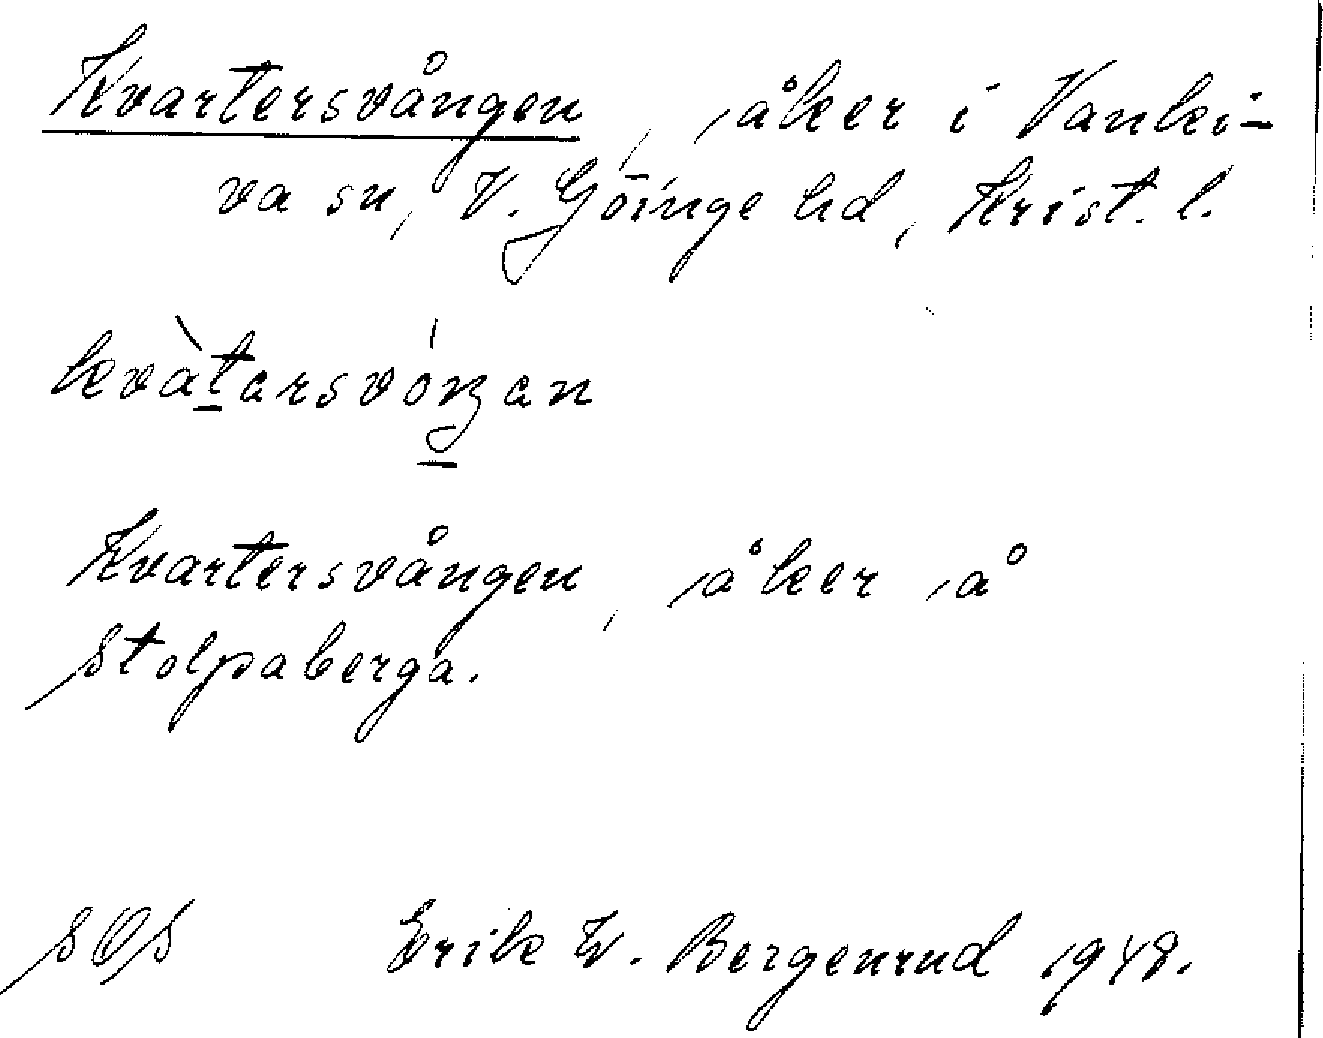 Kvartersvången, åker i Vanki-
va sn, V. Göinge hd, Krist. l.
kvàtarsvóŋan
Kvartersvången, åker å
Stolpaberga.
SOS Erik W. Bergenrud 1948.